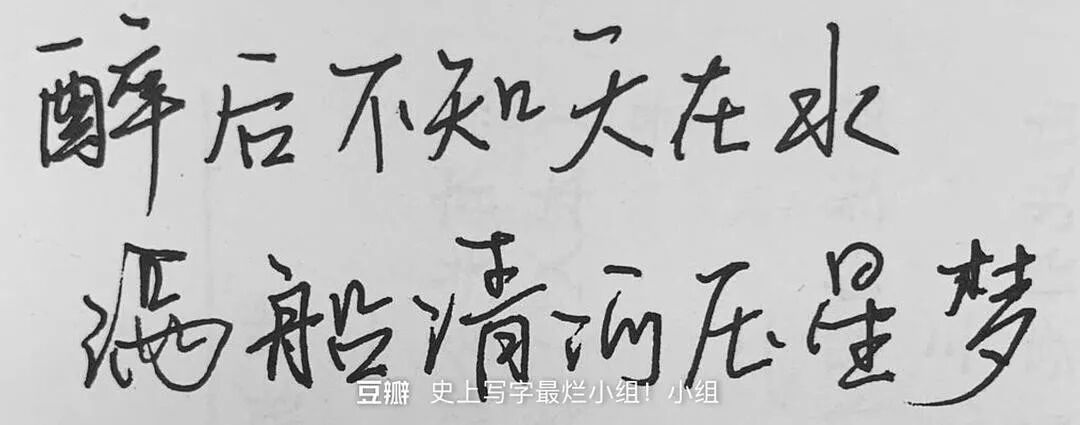 醉后不知天在水
满船清河压星梦
豆瓣 史上写字最烂小组！小组